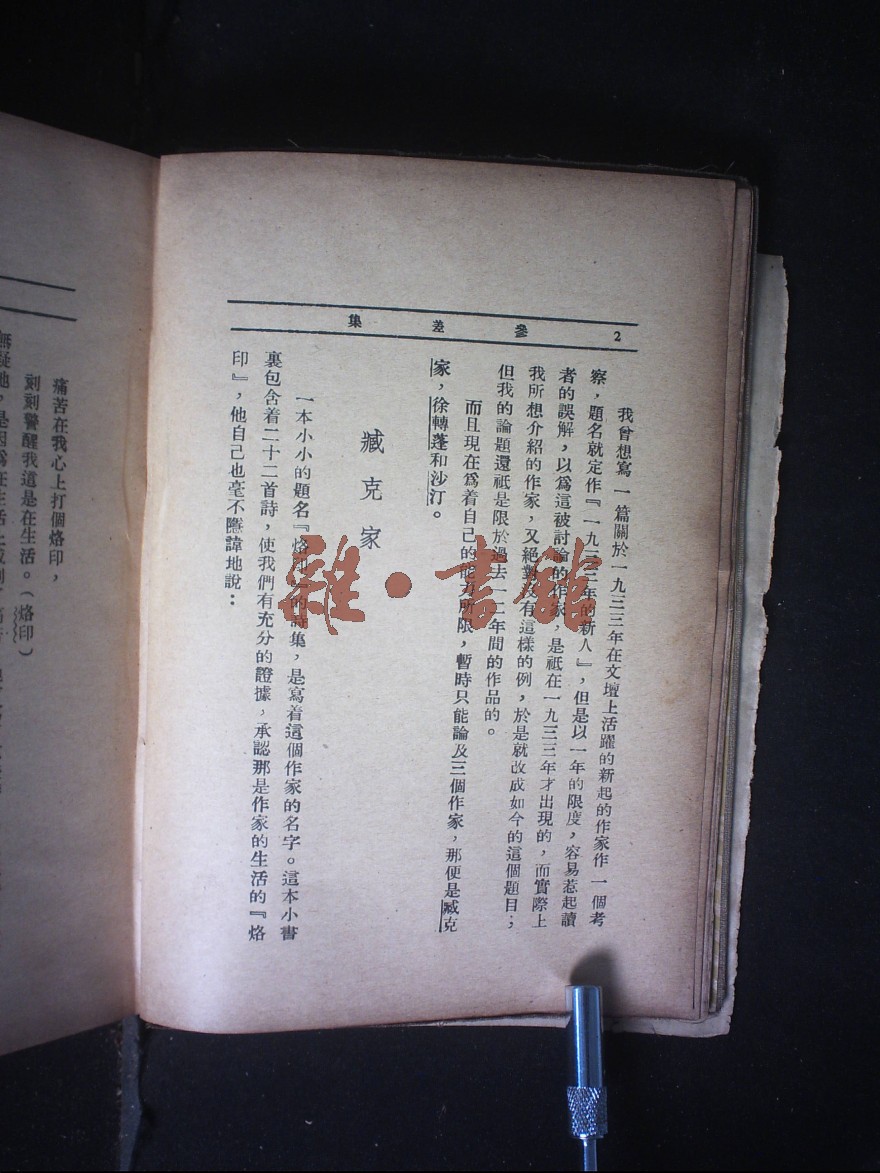 2　參差集
我曾想寫一篇關於一九三三年在文壇上活躍的新起的作家作一個考
察，題名就定作『一九三三年的新人』，但是以一年的限度，容易惹起讀
者的誤解，以爲這被討論的作家，是祗在一九三三年才出現的，而實際上
我所想介紹的作家，又絕對沒有這樣的例，於是就改成如今的這個題目；
但我的論題還祗是限於過去一二年間的作品的。
而且現在爲着自己的能力所限，暫時只能論及三個作家，那便是臧克
家，徐轉蓬和沙汀。
臧克家
一本小小的題名『烙印』的詩集，是寫着這個作家的名字。這本小書
裏包含着二十二首詩，使我們有充分的證據，承認那是作家的生活的『烙
印』，他自己也毫不隱諱地說：
痛苦在我心上打個烙印，
刻刻警醒我這是在生活。（烙印）
無疑地，是因爲在生活上
雜·書館